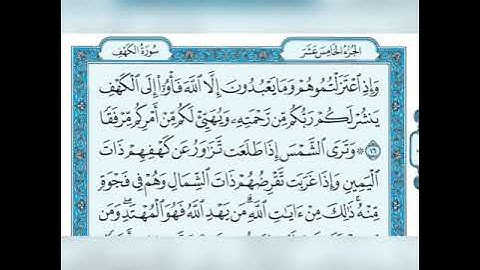 الجزء الخامس عشر
سورة الكهف
وَإِذِ ٱعۡتَزَلۡتُمُوهُمۡ وَمَا يَعۡبُدُونَ إِلَّا ٱللَّهَ فَأۡوُۥٓاْ إِلَى ٱلۡكَهۡفِ
يَنشُرۡ لَكُمۡ رَبُّكُم مِّن رَّحۡمَتِهِۦ وَيُهَيِّئۡ لَكُم مِّنۡ أَمۡرِكُم مِّرۡفَقٗا
١٦ ۞ وَتَرَى ٱلشَّمۡسَ إِذَا طَلَعَت تَّزَٰوَرُ عَن كَهۡفِهِمۡ ذَاتَ
ٱلۡيَمِينِ وَإِذَا غَرَبَت تَّقۡرِضُهُمۡ ذَاتَ ٱلشِّمَالِ وَهُمۡ فِي فَجۡوَةٖ
مِّنۡهُۚ ذَٰلِكَ مِنۡ ءَايَٰتِ ٱللَّهِۗ مَن يَهۡدِ ٱللَّهُ فَهُوَ ٱلۡمُهۡتَدِۖ وَمَن